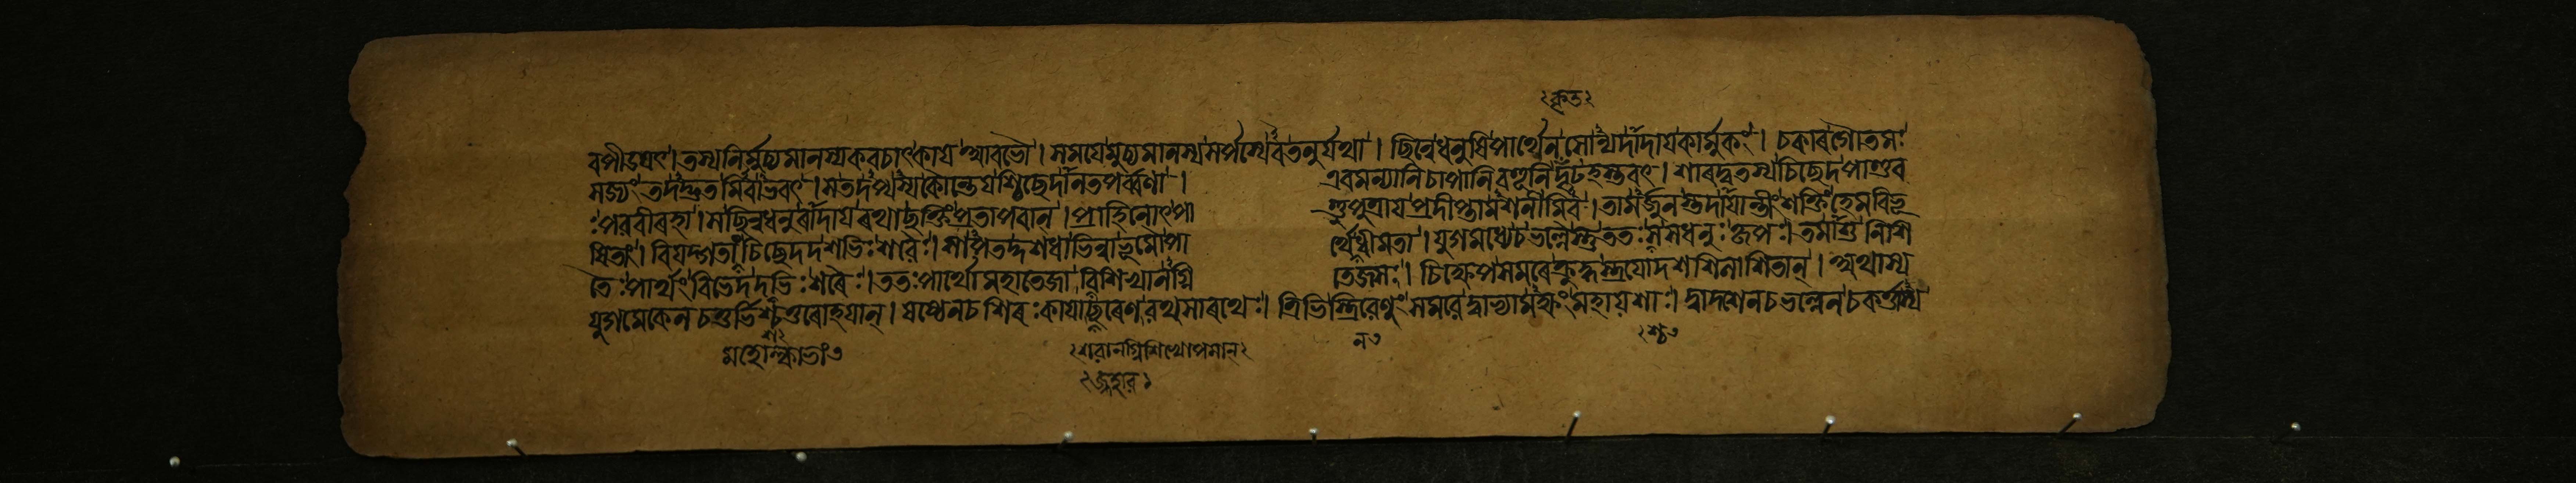 কৃত
বপীডয়ৎ। তস্য নির্মুচ্যমানস্য কবচাৎ কায় আবভৌ। সময়ে মুচ্যমানস্য সর্পস্যেব তনুর্যথা। ছিন্নে ধনুষি পার্থেন সোন্যদাদায় কার্মুকং। চকার গৌতমঃ
সজ্যং তদদ্ভুতমিবাভবৎ। স তদপ্যস্য কৌন্তেয়শ্চিচ্ছেদানতপর্ব্বণা। এবমন্যানি চাপানি বহূনি দৃঢহস্তবৎ। শারদ্বতস্য চিচ্ছেদ পাণ্ডব
ঃ পরবীরহা। স ছিন্নধনুরাদায় রথাচ্ছক্তিং প্রতাপবান্। প্রাহিনোৎ পাণ্ডুপুত্রায় প্রদীপ্তামশনীমিব। তামর্জুনস্তদায়ান্তীং শক্তিং হেমবিভূ
ষিতাং। বিয়দ্গতাং চিচ্ছেদ দশভিঃ শরৈঃ। সাপতদ্দশধা ভিন্না ভূমৌ পার্থেণ ধীমতা। যুগমধ্যে চ ভল্লৈস্তু ততঃ স সধনুঃ কৃপঃ। তমাশু নিশি
তৈঃ পার্থং বিভেদ দশভিঃ শরৈঃ। ততঃ পার্থো মহাতেজা বিশিখানগ্নিতেজসঃ। চিক্ষেপ সমরে ক্রুদ্ধস্ত্রয়োদশ শিলাশিতান্। অথাস্য
যুগমেকেন চতুর্ভিশ্চতুরো হয়ান্। ষষ্ঠেন চ শিরঃ কায়াচ্ছরেণ রথসারথেঃ। ত্রিভিস্ত্রিবেণুং সমরে দ্বাভ্যামক্ষং মহায়শাঃ। দ্বাদশেন চ ভল্লেন চকর্ত্তাস্য
মহোল্কাভাং ৩
শরানগ্নিশিখোপমান্
ন ৩
শ্চ ৩
জহার